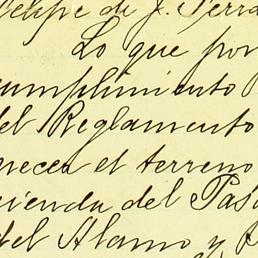 Felipe de J. Serra
Lo que por
cumplimiento
del Reglamento
necer el terreno
cienda del Paso
del Alamo y